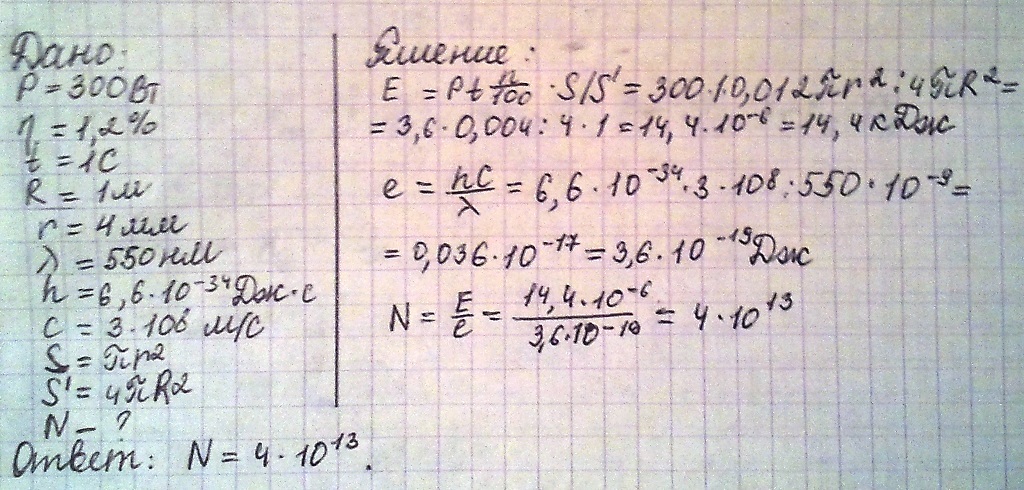 Дано:
P = 300Вт
η = 1,2%
t = 1С
R = 1м
r = 4мм
λ = 550нм
h = 6,6·10⁻³⁴Дж·с
c = 3·10⁸ м/с
S = πr²
S' = 4πR²
N – ?
Решение:
E = Pt n/100 · S/S' = 300·1·0,012πr² : 4πR² =
= 3,6·0,004 : 4·1 = 14,4·10⁻⁶ = 14,4кДж
e = hc/λ = 6,6·10⁻³⁴·3·10⁸ : 550·10⁻⁹ =
= 0,036·10⁻¹⁷ = 3,6·10⁻¹⁹Дж
N = E/e = 14,4·10⁻⁶/3,6·10⁻¹⁹ = 4·10¹³
Ответ: N = 4·10¹³.